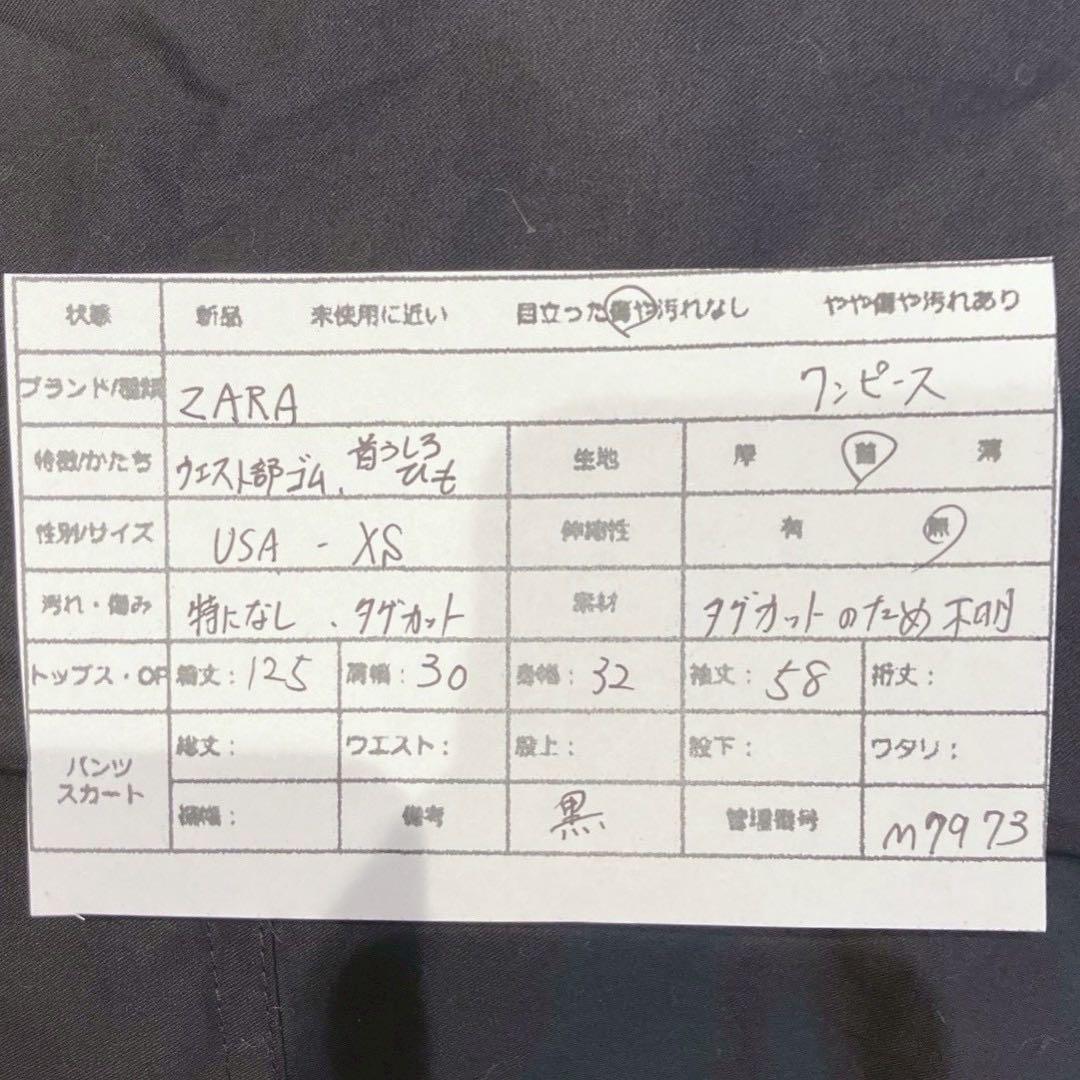 状態 新品 未使用に近い 目立った傷や汚れなし やや傷や汚れあり
ブランド/種類 ZARA ワンピース
特徴/かたち ウエスト部ゴム、首うしろひも 生地 厚 普 薄
性別/サイズ USA - XS 伸縮性 有 無
汚れ・傷み 特になし、タグカット 素材 タグカットのため不明
トップス・OP 着丈：125 肩幅：30 身幅：32 袖丈：58 裄丈：
パンツ
スカート
総丈： ウエスト： 股上： 股下： ワタリ：
裾幅： 備考 黒 管理番号 m7973